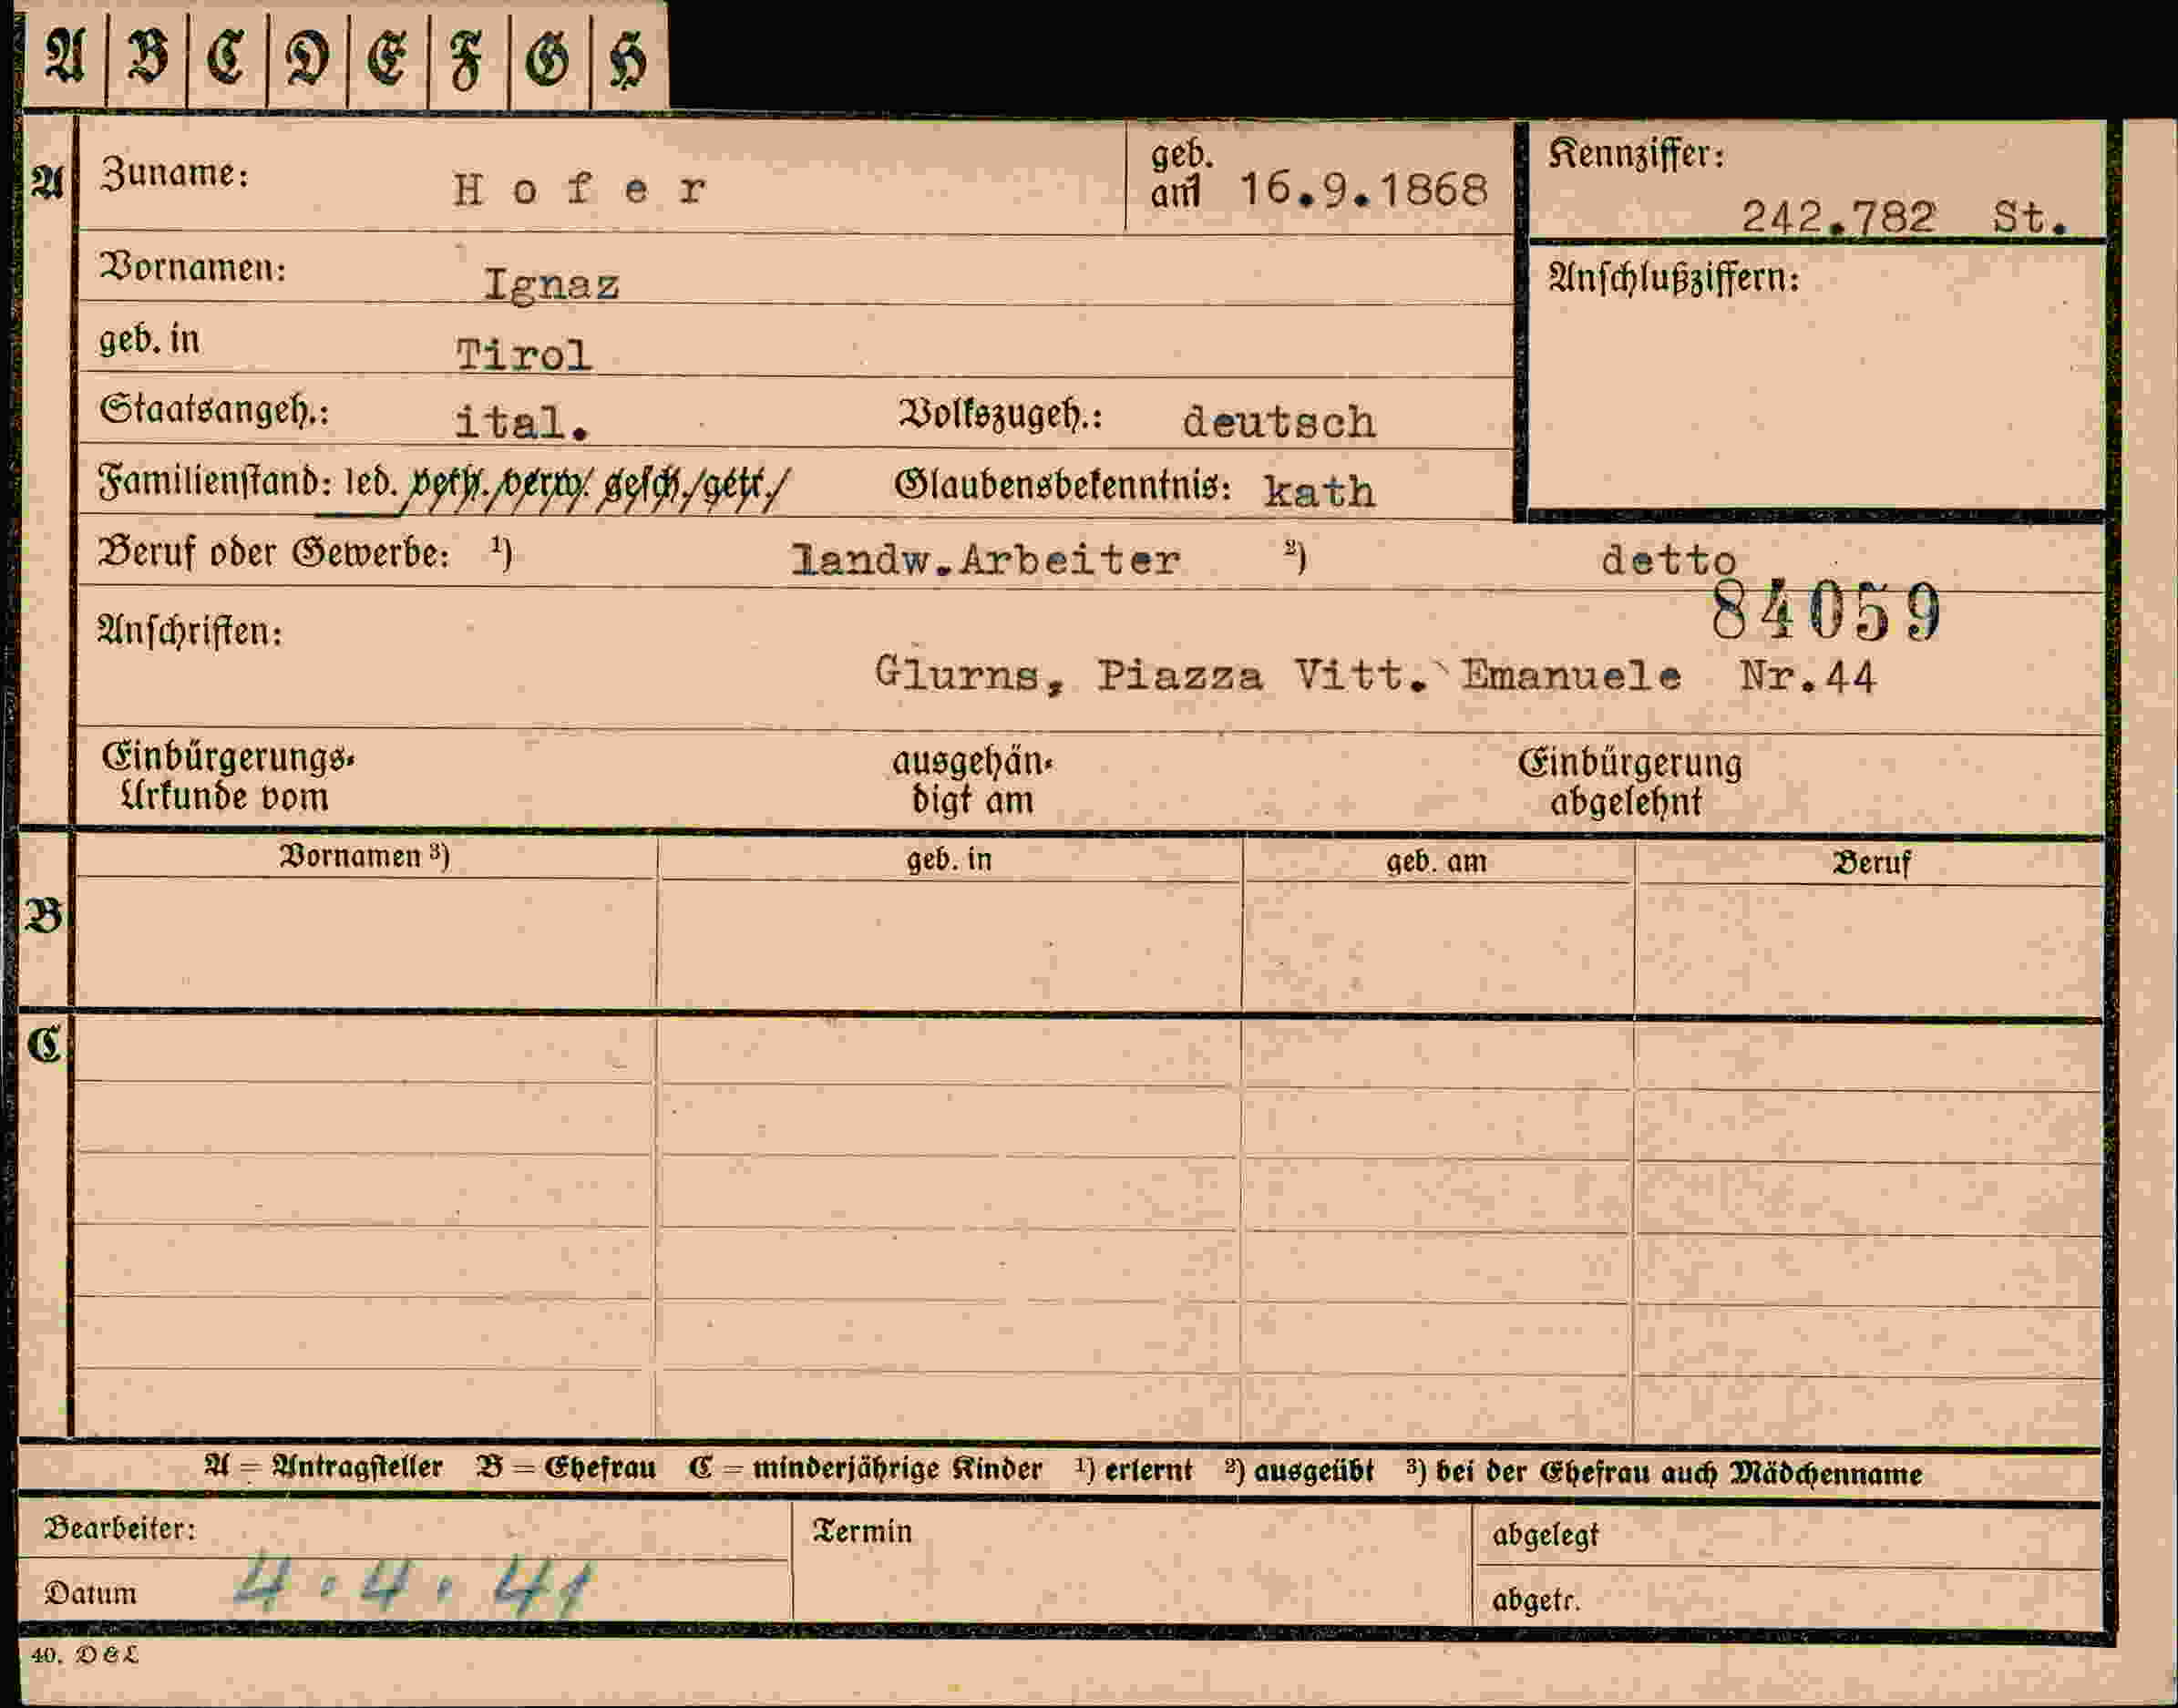 A B C D E F G H
A Zuname: Hofer geb. am 16.9.1868 Kennziffer:
242.782 St.
Vornamen: Ignaz Anschlußziffern:
geb. in Tirol
Staatsangeh.: ital. Volkszugeh.: deutsch
Familienstand: led. verh. verw. gesch. getr. Glaubensbekenntnis: kath
Beruf oder Gewerbe: ¹) landw.Arbeiter ²) detto
84059
Anschriften:
Glurns, Piazza Vitt. Emanuele Nr.44
Einbürgerungs- ausgehän- Einbürgerung
Urkunde vom digt am abgelehnt
Vornamen ³) geb. in geb. am Beruf
B
C
A = Antragsteller B = Ehefrau C = minderjährige Kinder ¹) erlernt ²) ausgeübt ³) bei der Ehefrau auch Mädchenname
Bearbeiter: Termin abgelegt
Datum 4.4.41 abgetr.
40. D&L